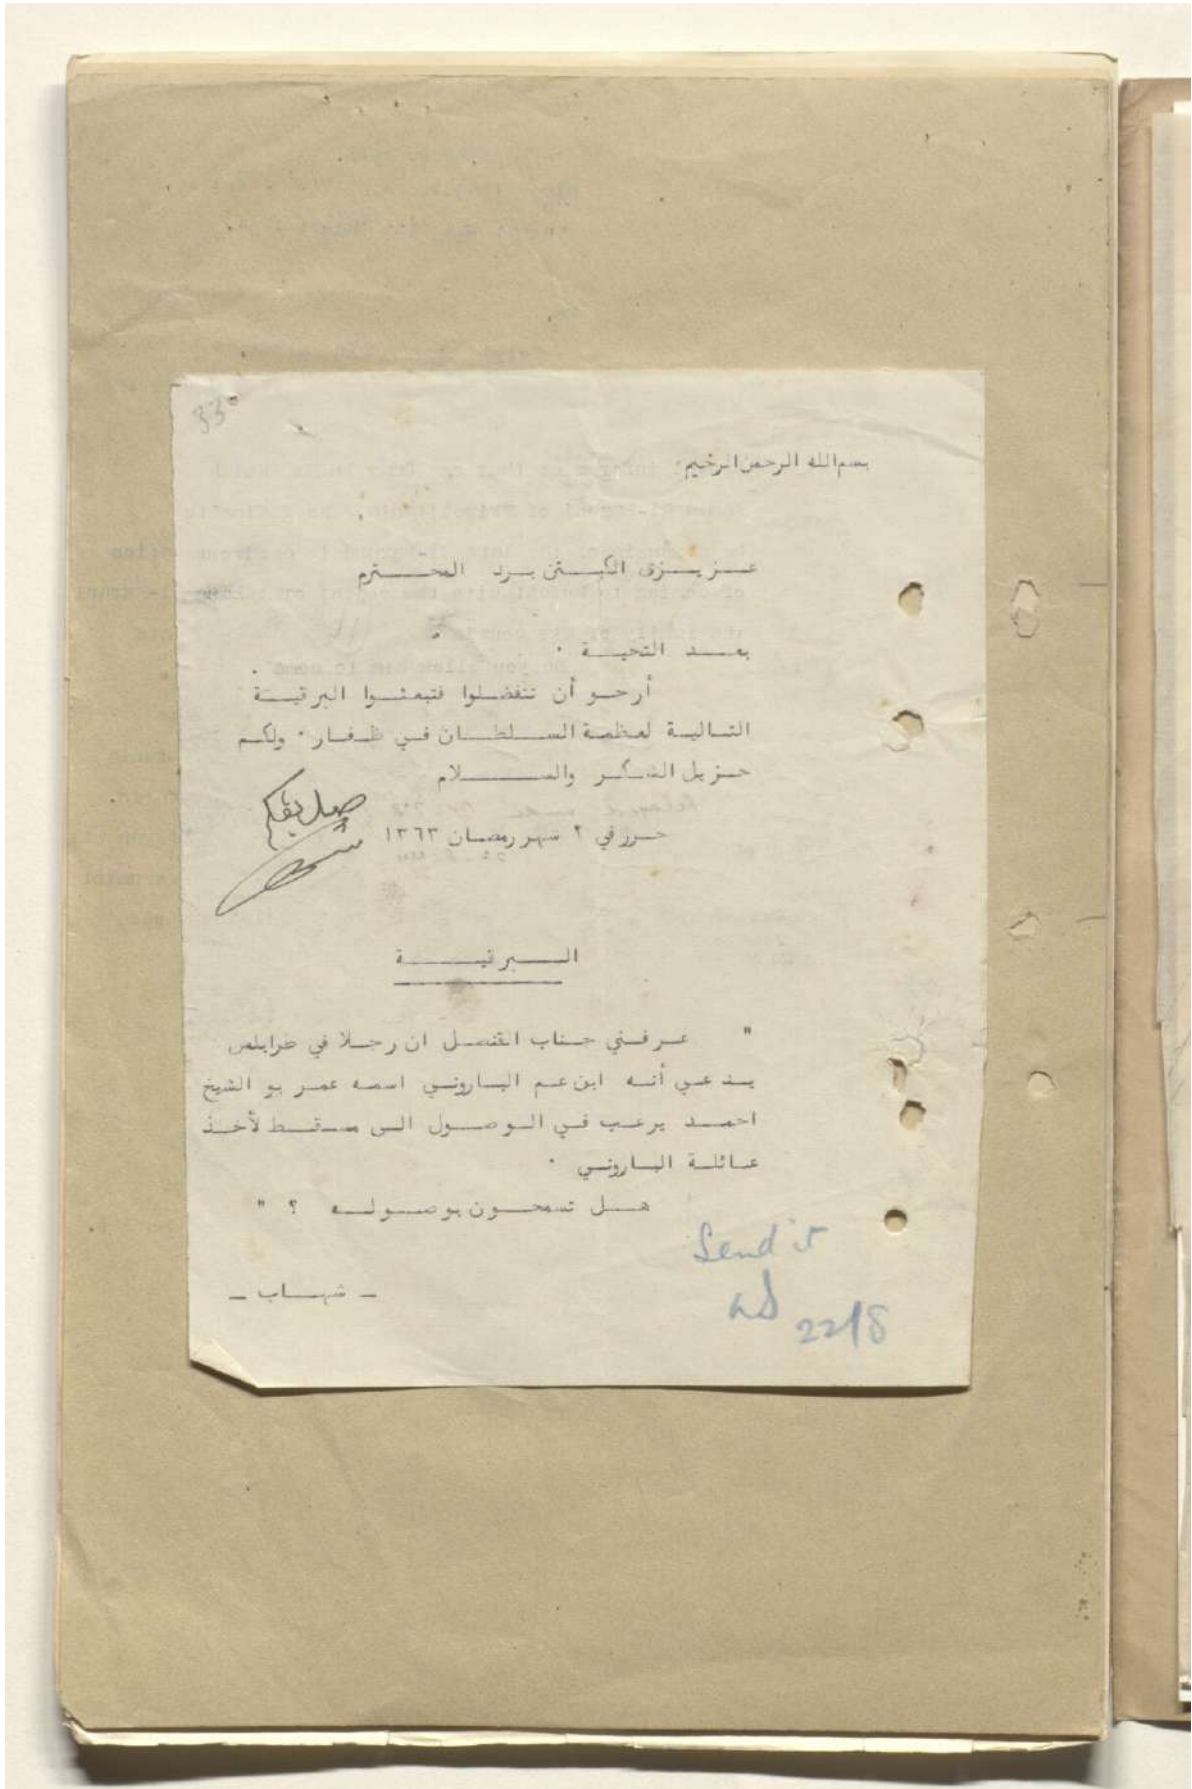 33
بسم الله الرحمن الرحيم
عزيزي الكبتن برد المحترم
بعد التحية ٠
أرجو أن تتفضلوا فتبعثوا البرقية
التالية لعظمة السلطان في ظفار ٠ ولكم
جزيل الشكر والسلام
حرر في ٢ شهر رمضان ١٣٦٣
البرقية
" عرفني جناب القنصل ان رجلا في طرابلس
يدعي أنه ابن عم الباروني اسمه عمر بو الشيخ
احمد يرغب في الوصول الى مسقط لأخذ
عائلة الباروني ٠
هل تسمحون بوصوله ؟ "
Send it
22/8
– شهاب –